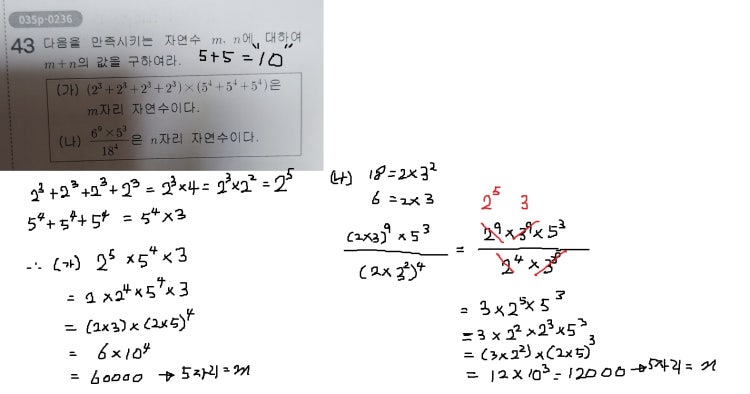 035p-0236
43 다음을 만족시키는 자연수 m, n에 대하여
m+n의 값을 구하여라. 5+5 = "10"
(가) (2³+2³+2³+2³)×(5⁴+5⁴+5⁴)은
m자리 자연수이다.
(나) 6⁹×5³/18⁴은 n자리 자연수이다.
2³+2³+2³+2³ = 2³×4 = 2³×2² = 2⁵
5⁴+5⁴+5⁴ = 5⁴×3
∴ (가) 2⁵×5⁴×3
= 2×2⁴×5⁴×3
= (2×3)×(2×5)⁴
= 6×10⁴
= 60000 → 5자리 = m
(나) 18 = 2×3²
6 = 2×3
2⁵ 3
(2×3)⁹×5³/(2×3²)⁴ = 2⁹×3⁹×5³/2⁴×3⁸
= 3×2⁵×5³
= 3×2²×2³×5³
= (3×2²)×(2×5)³
= 12×10³ = 12000 → 5자리 = n